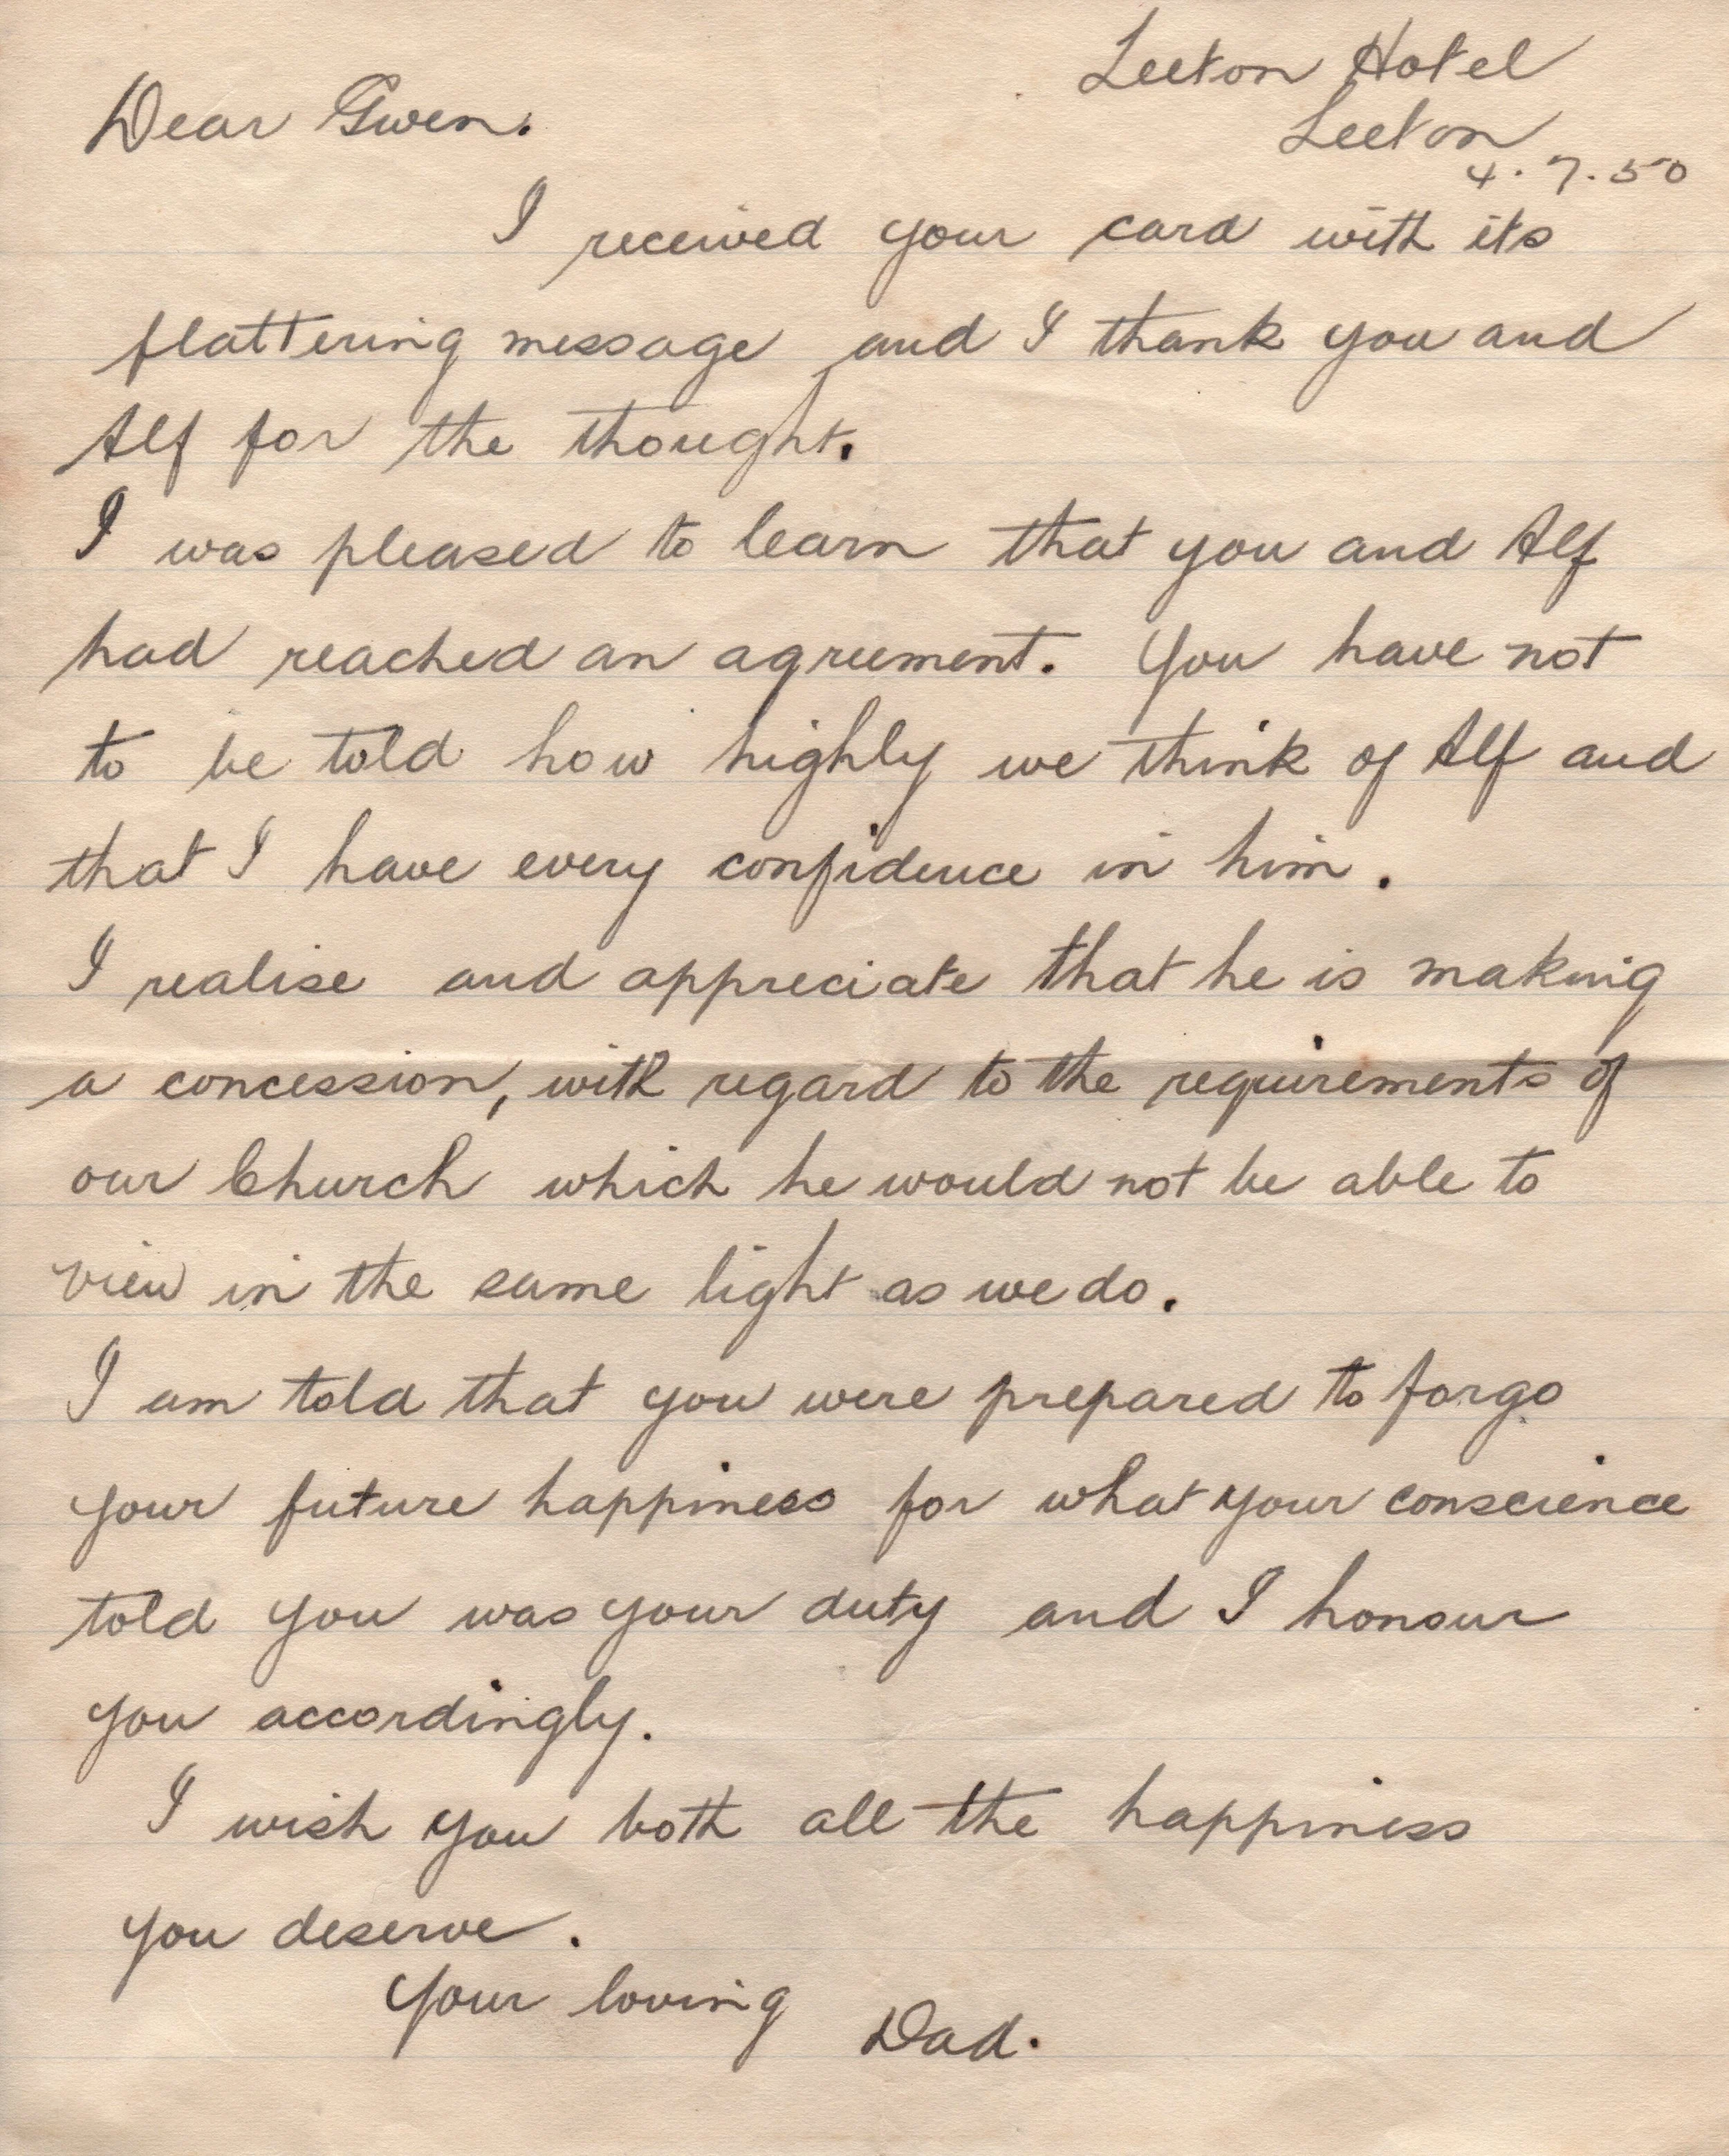 Leeton Hotel
Leeton
4.7.50
Dear Gwen.
I received your card with its
flattering message and I thank you and
Alf for the thought.
I was pleased to learn that you and Alf
had reached an agreement. You have not
to be told how highly we think of Alf and
that I have every confidence in him.
I realise and appreciate that he is making
a concession, with regard to the requirements of
our Church which he would not be able to
view in the same light as we do.
I am told that you were prepared to forgo
your future happiness for what your conscience
told you was your duty and I honour
you accordingly.
I wish you both all the happiness
you deserve.
Your loving
Dad.